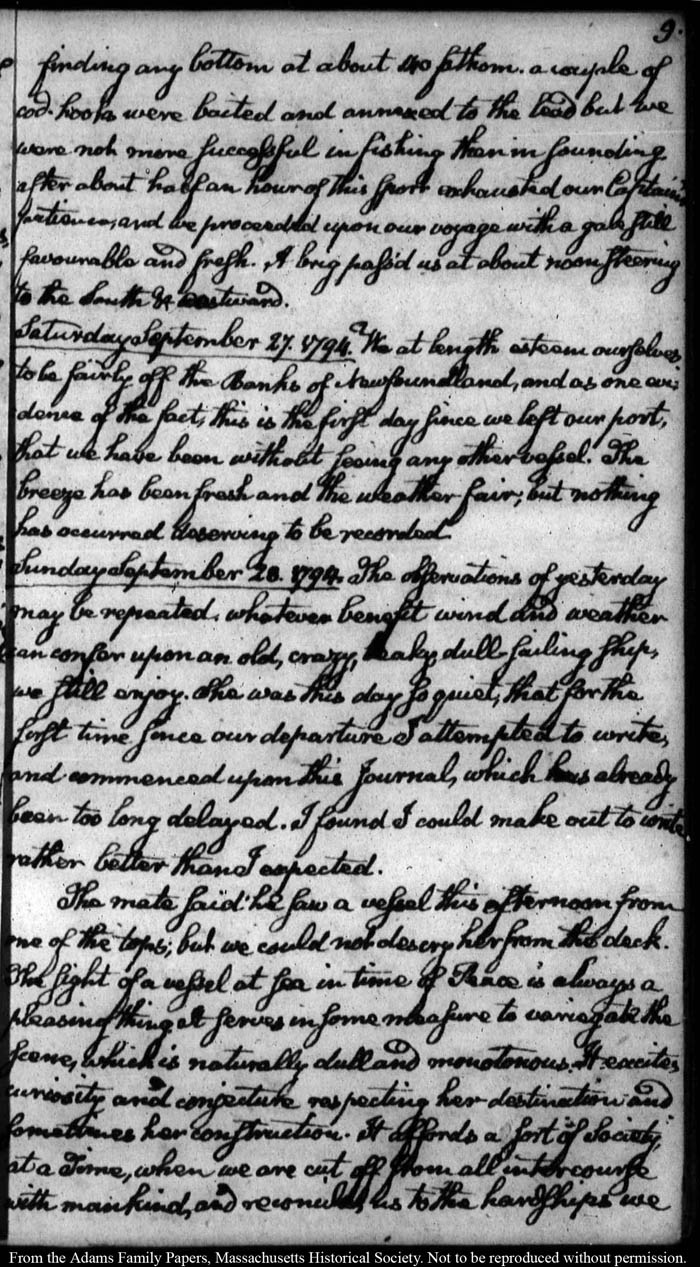 9.
finding any bottom at about 40 fathom. a couple of
cod-hooks were baited and annexed to the lead but we
were not more successful in fishing than in sounding
after about half an hour of this sport exhausted our Captain's
patience, and we proceeded upon our voyage with a gale still
favourable and fresh. A brig pass'd us at about noon steering
to the South & westward.
Saturday September 27. 1794. We at length esteem ourselves
to be fairly off the Banks of Newfoundland, and as one evi-
dence of the fact, this is the first day since we left our port,
that we have been without seeing any other vessel. The
breeze has been fresh and the weather fair; but nothing
has occurred deserving to be recorded
Sunday September 28. 1794. The observations of yesterday
may be repeated. whatever benefit wind and weather
can confer upon an old, crazy, leaky, dull-sailing ship,
we still enjoy. She was this day so quiet, that for the
first time since our departure I attempted to write,
and commenced upon this Journal, which has already
been too long delayed. I found I could make out to write
rather better than I expected.
The mate said he saw a vessel this afternoon from
one of the tops; but we could not descry her from the deck.
The sight of a vessel at sea in time of Peace is always a
pleasing thing It serves in some measure to variegate the
scene, which is naturally dull and monotonous. It excites
curiosity and conjecture respecting her destination and
sometimes her construction. It affords a sort of Society,
at a Time, when we are cut off from all intercourse
with mankind, and reconciles us to the hardships we
From the Adams Family Papers, Massachusetts Historical Society. Not to be reproduced without permission.